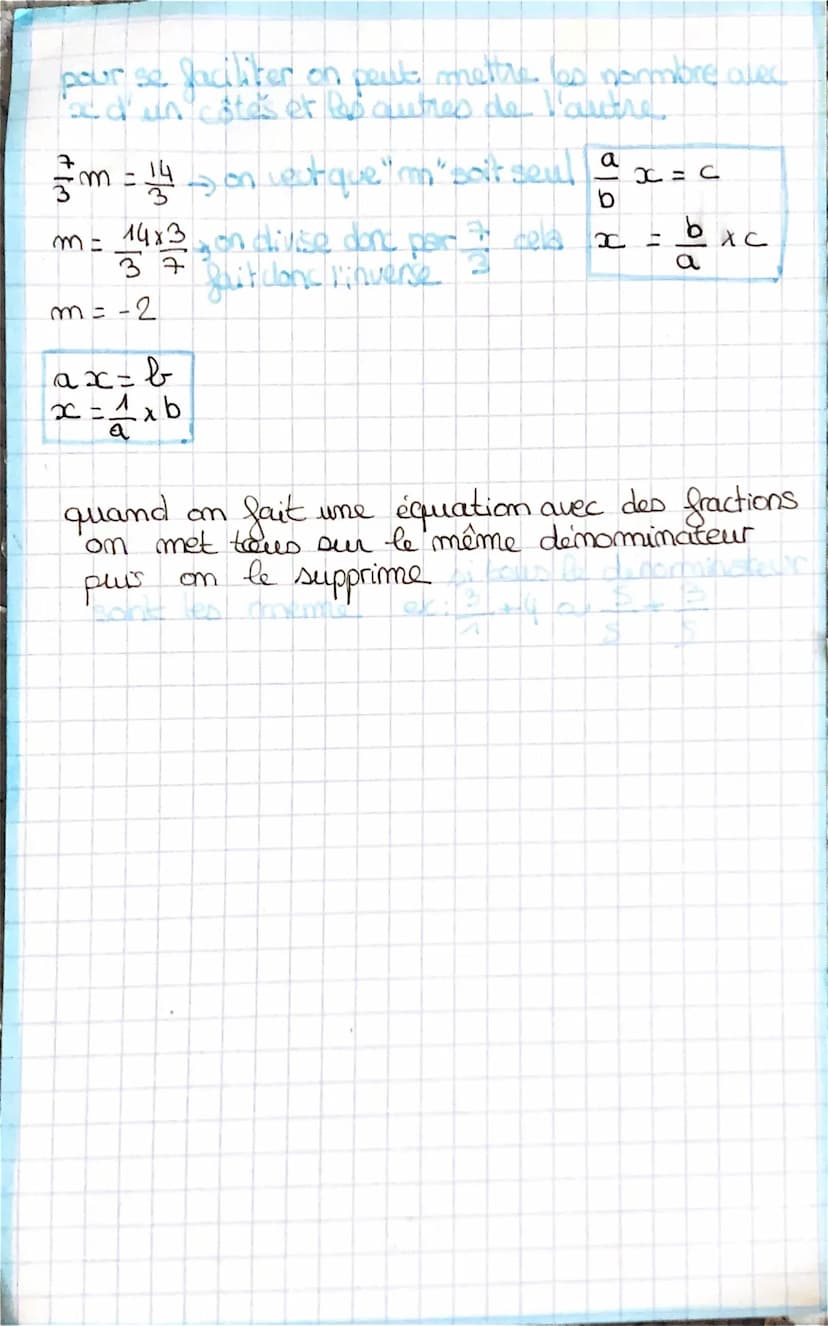 pour se faciliter on peut mettre les normbre avec
x d'un côtés et les autres de l'autre
7/3 m = 14/3 → on veut que "m" soit seul
m = 14/3 x 3/7 → on divise donc par 7/3 cela
fait donc l'inverse
m = -2
a/b x = c
x = b/a x c
ax = b
x = 1/a x b
quand on fait une équation avec des fractions
on met tous sur le même dénominateur
puis on le supprime si tous le denorminateur
sont les meme ex: 3/1 + 4